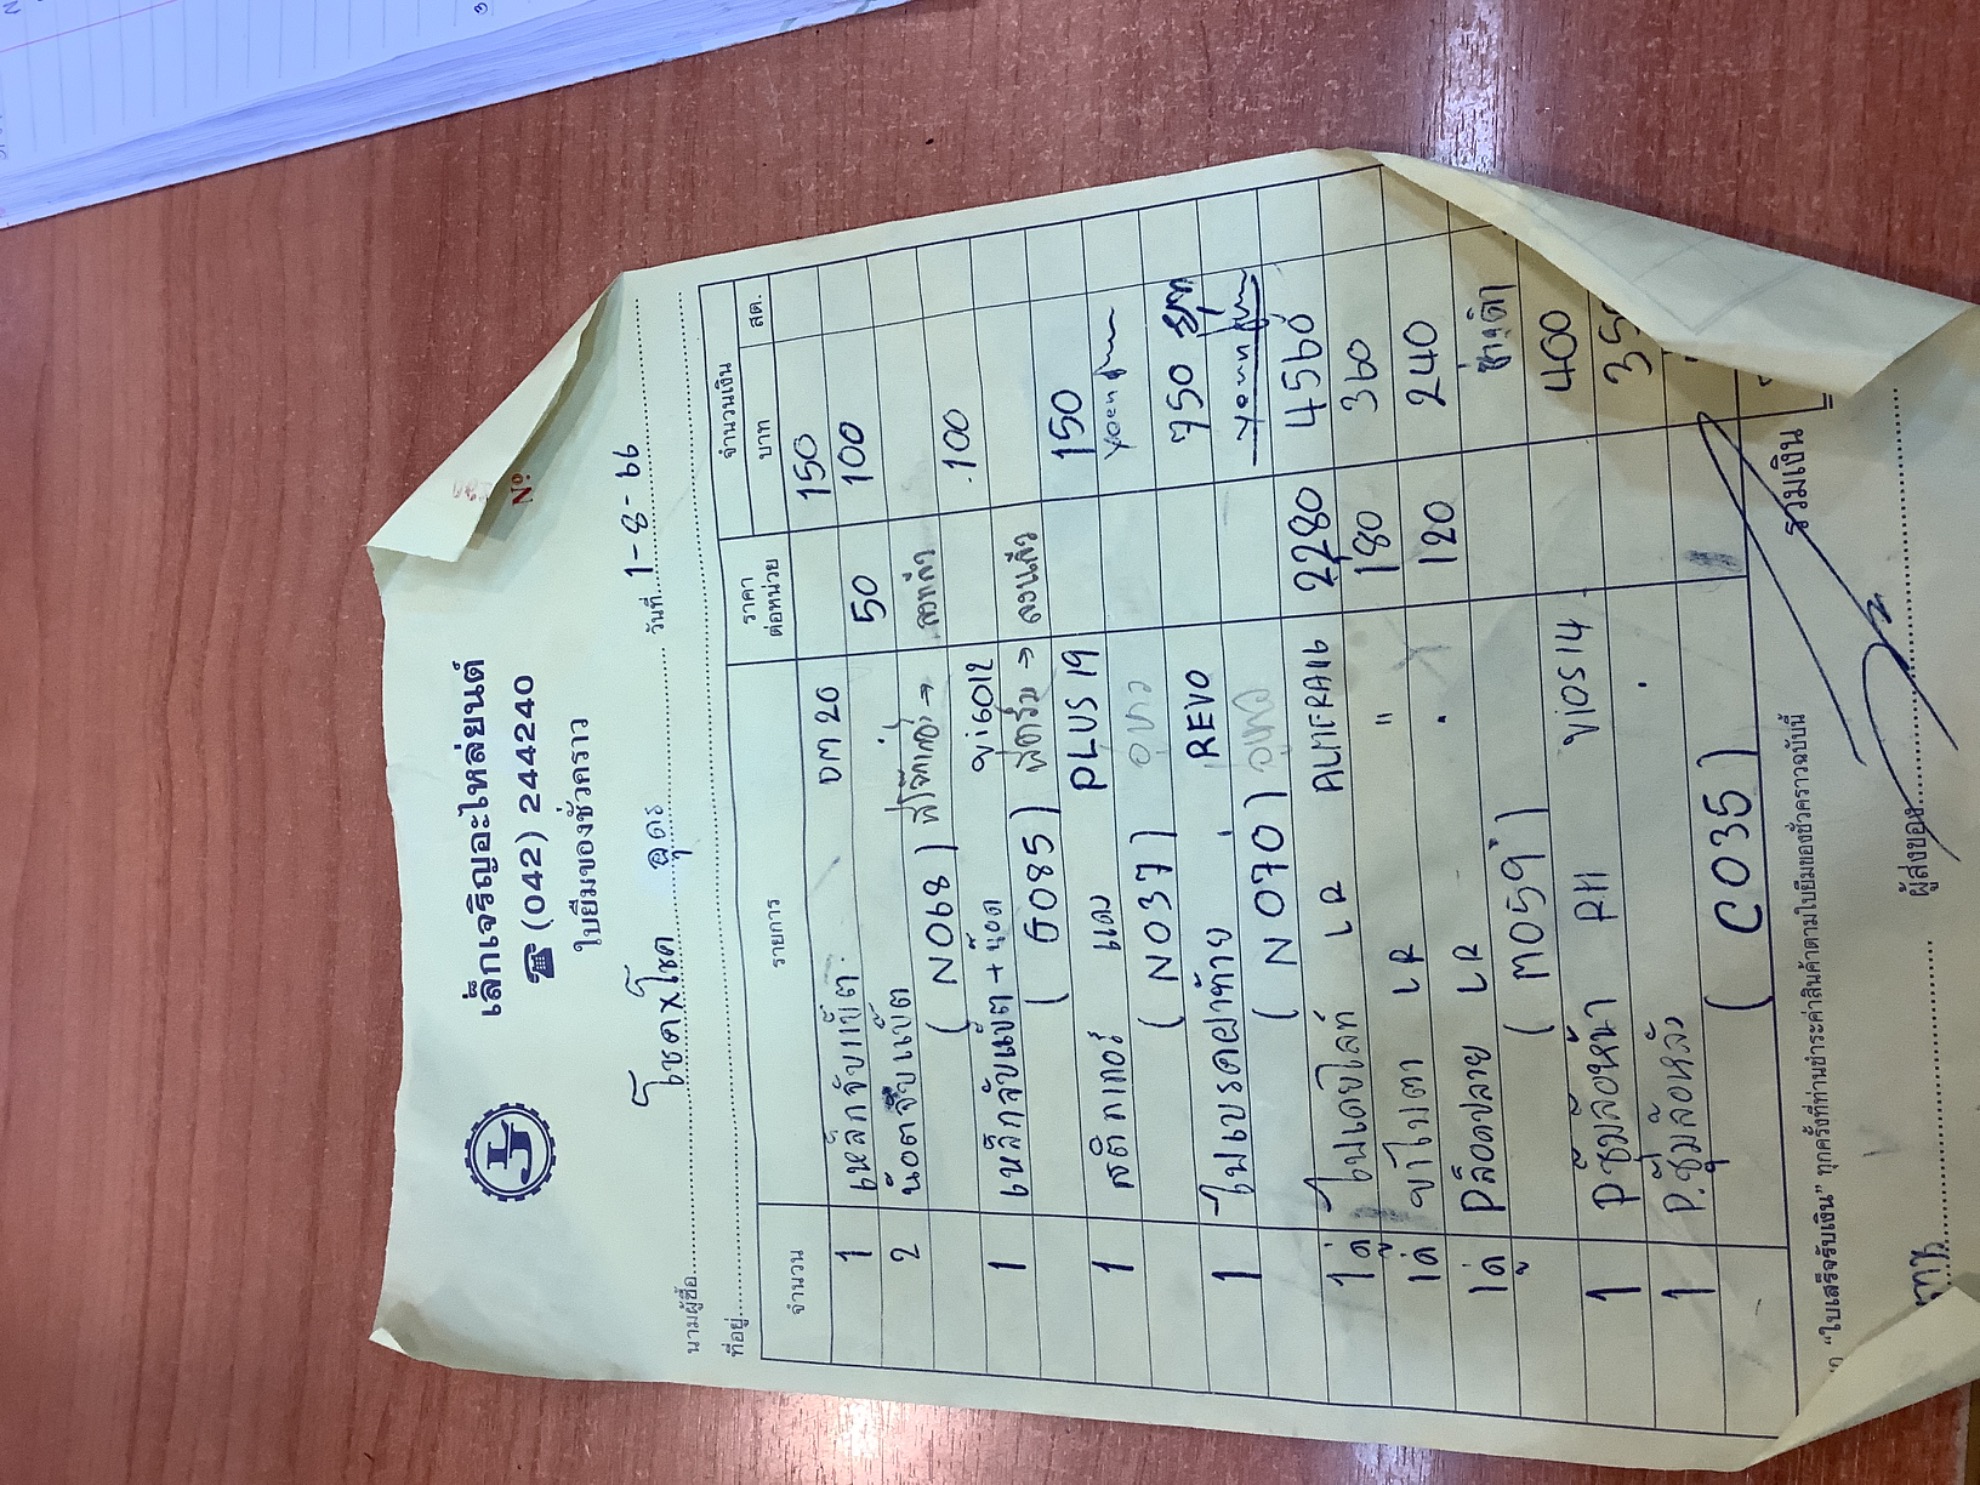 เล็กเจริญอะไหล่ยนต์
☎ (042) 244240
ใบยืมของชั่วคราว
Nº
นามผู้ซื้อ โชคxโชค อุดร วันที่ 1-8-66
ที่อยู่
จำนวน รายการ ราคาต่อหน่วย จำนวนเงิน บาท สต.
1 เหล็กจับแบ็ต DM 20 150
2 น๊อตจับแบ็ต 50 100
(N068)
1 เหล็กจับแบ็ต + น๊อต Vigo12 100
(G085) → ลงแล้ว
1 สติกเกอร์ แดง PLUS 19 150
(N037)
1 ไฟเบรคฝาท้าย REVO 750
(N070)
1 คู่ ไฟเดย์ไลท์ LR ALMERA16 2280 4560
1 คู่ ขาไฟตา LR " 180 360
1 คู่ Pล็อดปลาย LR 120 240
(M059) ช่างดำ
1 Pซุ้มล้อหน้า RH VIOS 14 400
1 P.ซุ้มล้อหลัง 35
(C035)
รวมเงิน
"ใบเสร็จรับเงิน" ทุกครั้งที่ท่านชำระค่าสินค้าตามใบยืมของชั่วคราวฉบับนี้
ผู้ส่งของ